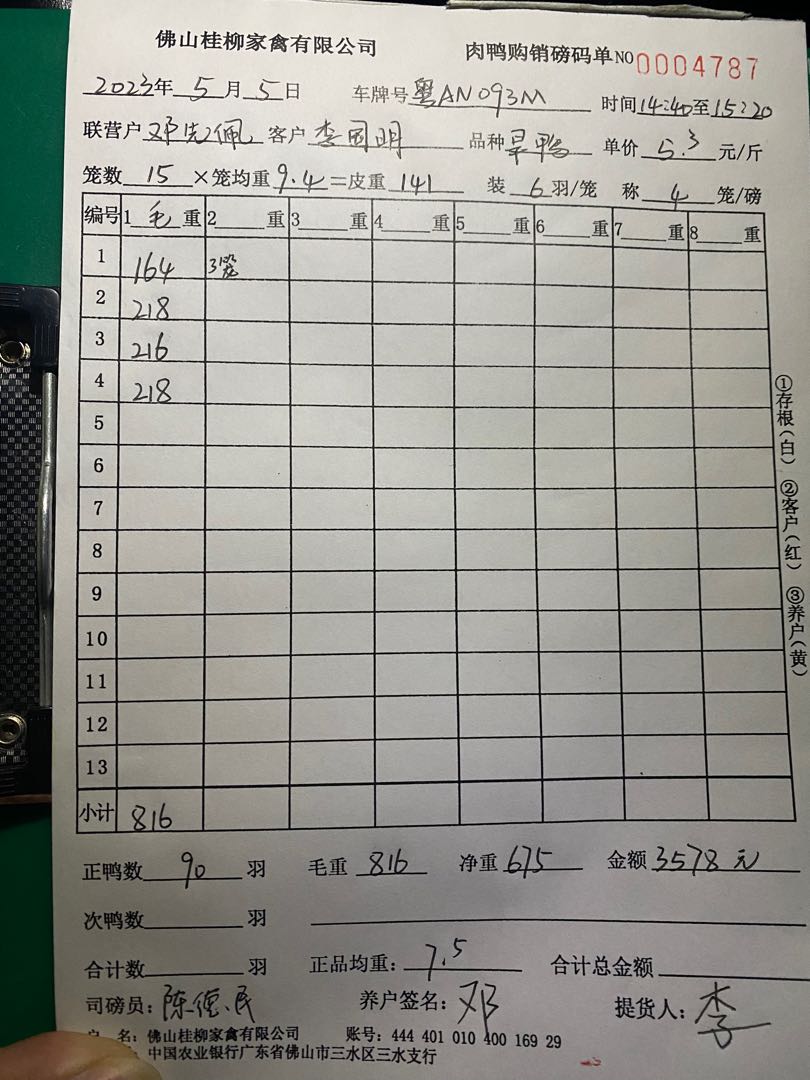 佛山桂柳家禽有限公司 肉鸭购销磅码单 NO 0004787
2023年 5 月 5 日 车牌号 粤AN093M 时间 14:40 至 15:20
联营户 邓先佩 客户 李国明 品种 旱鸭 单价 5.3 元/斤
笼数 15 ×笼均重 9.4 =皮重 141 装 6 羽/笼 称 4 笼/磅
编号 1 毛 重 2 重 3 重 4 重 5 重 6 重 7 重 8 重
1 164 3笼
2 218
3 216
4 218
5
6
7
8
9
10
11
12
13
小计 816
①存根(白) ②客户(红) ③养户(黄)
正鸭数 90 羽 毛重 816 净重 675 金额 3578 元
次鸭数 羽
合计数 羽 正品均重: 7.5 合计总金额
司磅员: 陈德民 养户签名: 邓 提货人: 李
名: 佛山桂柳家禽有限公司 账号: 444 401 010 400 169 29
中国农业银行广东省佛山市三水区三水支行